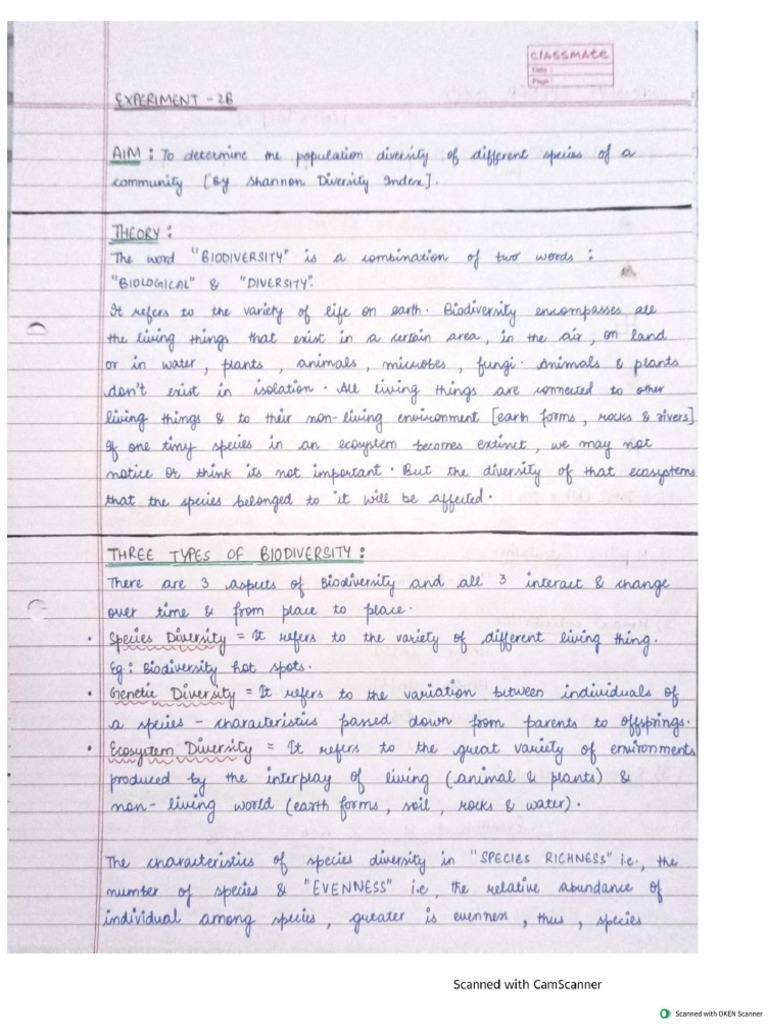 classmate
Date :
Page :
EXPERIMENT - 2B
AIM : To determine the population diversity of different species of a
community [By Shannon Diversity Index].
THEORY :
The word "BIODIVERSITY" is a combination of two words :
"BIOLOGICAL" & "DIVERSITY".
It refers to the variety of life on earth. Biodiversity encompasses all
the living things that exist in a certain area, in the air, on land
or in water, plants, animals, microbes, fungi. Animals & plants
don't exist in isolation. All living things are connected to other
living things & to their non-living environment [earth forms, rocks & rivers]
If one tiny species in an ecosystem becomes extinct, we may not
notice or think its not important. But the diversity of that ecosystems
that the species belonged to it will be affected.
THREE TYPES OF BIODIVERSITY :
There are 3 aspects of Biodiversity and all 3 interact & change
over time & from place to place.
• Species Diversity = It refers to the variety of different living thing.
Eg: Biodiversity hot spots.
• Genetic Diversity = It refers to the variation between individuals of
a species - characteristics passed down from parents to offsprings.
• Ecosystem Diversity = It refers to the great variety of environments
produced by the interplay of living (animal & plants) &
non-living world (earth forms, soil, rocks & water).
The characteristics of species diversity in "SPECIES RICHNESS" i.e., the
number of species & "EVENNESS" i.e, the relative abundance of
individual among species, greater is evenness, thus, species
Scanned with CamScanner
Scanned with OKEN Scanner